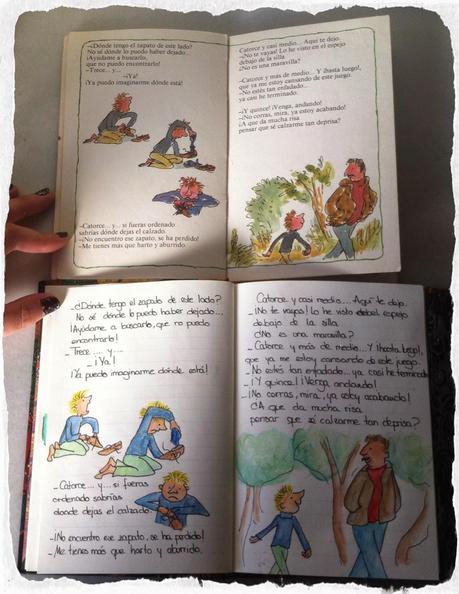 —¿Dónde tengo el zapato de este lado?
No sé dónde lo puedo haber dejado...
¡Ayúdame a buscarlo,
que no puedo encontrarlo!
—Trece... y...
—¡Ya!
¡Ya puedo imaginarme dónde está!
—Catorce... y... si fueras ordenado
sabrías dónde dejas el calzado.
—¡No encuentro ese zapato, se ha perdido!
—Me tienes más que harto y aburrido.
Catorce y casi medio... Aquí te dejo.
—¡No te vayas! Lo he visto en el espejo
debajo de la silla.
¿No es una maravilla?
—Catorce y más de medio... Y ¡hasta luego!,
que ya me estoy cansando de este juego.
—No estés tan enfadado...
ya casi he terminado.
—¡Y quince! ¡Venga, andando!
—¡No corras, mira, ya estoy acabando!
¿A que da mucha risa
pensar que sé calzarme tan deprisa?
—¿Dónde tengo el zapato de este lado?
No sé dónde lo puedo haber dejado...
¡Ayúdame a buscarlo, que no puedo
encontrarlo!
—Trece .... y....
—¡Ya!
¡Ya puedo imaginarme donde está!
—Catorce ... y... si fueras
ordenado sabrías
donde dejas el calzado.
—¡No encuentro ese zapato, se ha perdido!
—Me tienes más que harto y aburrido.
Catorce y casi medio.... Aquí te dejo.
—¡No te vayas! Lo he visto en el espejo
debajo de la silla
¿No es una maravilla?
—Catorce y más de medio... Y ¡hasta luego!,
que ya me estoy cansando de este juego.
—No estés tan enfadado... ya casi he terminado
—¡Y quince! ¡Venga, andando!
—¡No corras, mira, ya estoy acabando!
¿A que da mucha risa
pensar que sé calzarme tan deprisa?